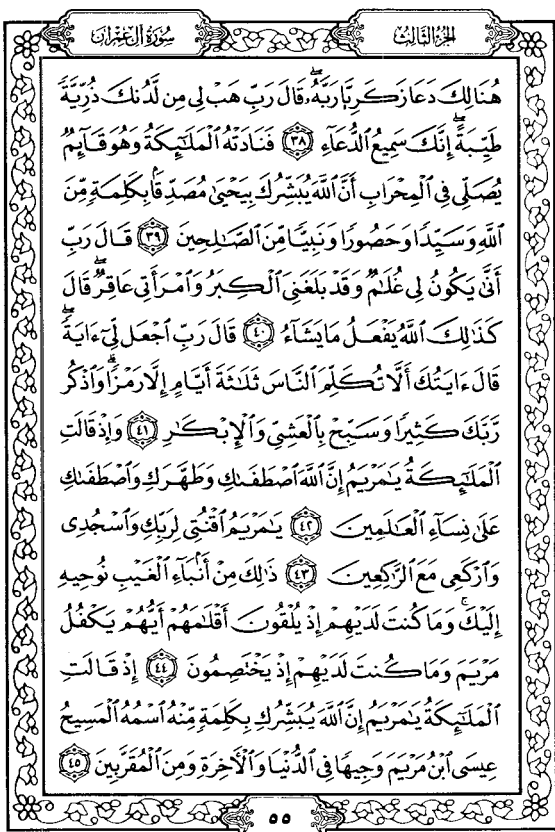 سُورَةُ آلِ عِمْرَانَ
الجُزْءُ الثَّالِثُ
هُنَالِكَ دَعَا زَكَرِيَّا رَبَّهُۥ ۖ قَالَ رَبِّ هَبْ لِى مِن لَّدُنكَ ذُرِّيَّةً
طَيِّبَةً ۖ إِنَّكَ سَمِيعُ ٱلدُّعَآءِ ٣٨ فَنَادَتْهُ ٱلْمَلَٰٓئِكَةُ وَهُوَ قَآئِمٌ
يُصَلِّى فِى ٱلْمِحْرَابِ أَنَّ ٱللَّهَ يُبَشِّرُكَ بِيَحْيَىٰ مُصَدِّقًۢا بِكَلِمَةٍ مِّنَ
ٱللَّهِ وَسَيِّدًا وَحَصُورًا وَنَبِيًّا مِّنَ ٱلصَّٰلِحِينَ ٣٩ قَالَ رَبِّ
أَنَّىٰ يَكُونُ لِى غُلَٰمٌ وَقَدْ بَلَغَنِىَ ٱلْكِبَرُ وَٱمْرَأَتِى عَاقِرٌ ۖ قَالَ
كَذَٰلِكَ ٱللَّهُ يَفْعَلُ مَا يَشَآءُ ٤٠ قَالَ رَبِّ ٱجْعَل لِّىٓ ءَايَةً ۖ
قَالَ ءَايَتُكَ أَلَّا تُكَلِّمَ ٱلنَّاسَ ثَلَٰثَةَ أَيَّامٍ إِلَّا رَمْزًا ۗ وَٱذْكُر
رَّبَّكَ كَثِيرًا وَسَبِّحْ بِٱلْعَشِىِّ وَٱلْإِبْكَٰرِ ٤١ وَإِذْ قَالَتِ
ٱلْمَلَٰٓئِكَةُ يَٰمَرْيَمُ إِنَّ ٱللَّهَ ٱصْطَفَىٰكِ وَطَهَّرَكِ وَٱصْطَفَىٰكِ
عَلَىٰ نِسَآءِ ٱلْعَٰلَمِينَ ٤٢ يَٰمَرْيَمُ ٱقْنُتِى لِرَبِّكِ وَٱسْجُدِى
وَٱرْكَعِى مَعَ ٱلرَّٰكِعِينَ ٤٣ ذَٰلِكَ مِنْ أَنۢبَآءِ ٱلْغَيْبِ نُوحِيهِ
إِلَيْكَ ۚ وَمَا كُنتَ لَدَيْهِمْ إِذْ يُلْقُونَ أَقْلَٰمَهُمْ أَيُّهُمْ يَكْفُلُ
مَرْيَمَ وَمَا كُنتَ لَدَيْهِمْ إِذْ يَخْتَصِمُونَ ٤٤ إِذْ قَالَتِ
ٱلْمَلَٰٓئِكَةُ يَٰمَرْيَمُ إِنَّ ٱللَّهَ يُبَشِّرُكِ بِكَلِمَةٍ مِّنْهُ ٱسْمُهُ ٱلْمَسِيحُ
عِيسَى ٱبْنُ مَرْيَمَ وَجِيهًا فِى ٱلدُّنْيَا وَٱلْءَاخِرَةِ وَمِنَ ٱلْمُقَرَّبِينَ ٤٥
٥٥